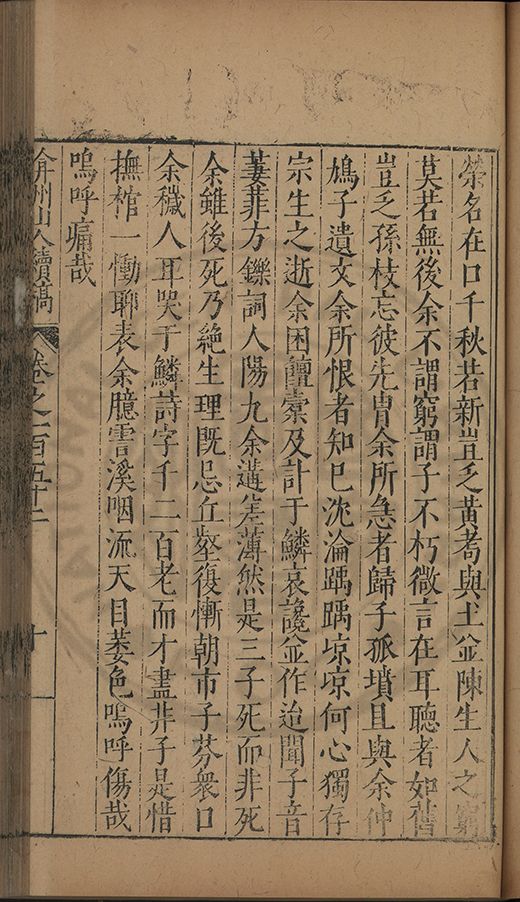 榮名在口千秋若新豈乏黃耈與土並陳生人之窮
莫若無後余不謂窮謂子不朽微言在耳聽者如舊
豈乏孫枝忘彼先胄余所急者歸子孤墳且與余仲
鳩子遺文余所恨者知巳沈淪踽踽凉凉何心獨存
宗生之逝余困饘橐及訃于鱗哀讒並作迨聞子音
萋菲方鑠詞人陽九余遘差薄然是三子死而非死
余雖後死乃絶生理既忌丘壑復慚朝市子芬衆口
余穢人耳哭于鱗詩字千二百老而才盡非子是惜
撫棺一慟聊表余臆霅溪咽流天目萎色嗚呼傷哉
嗚呼痛哉
弇州山人續稿 卷之一百五十二 十